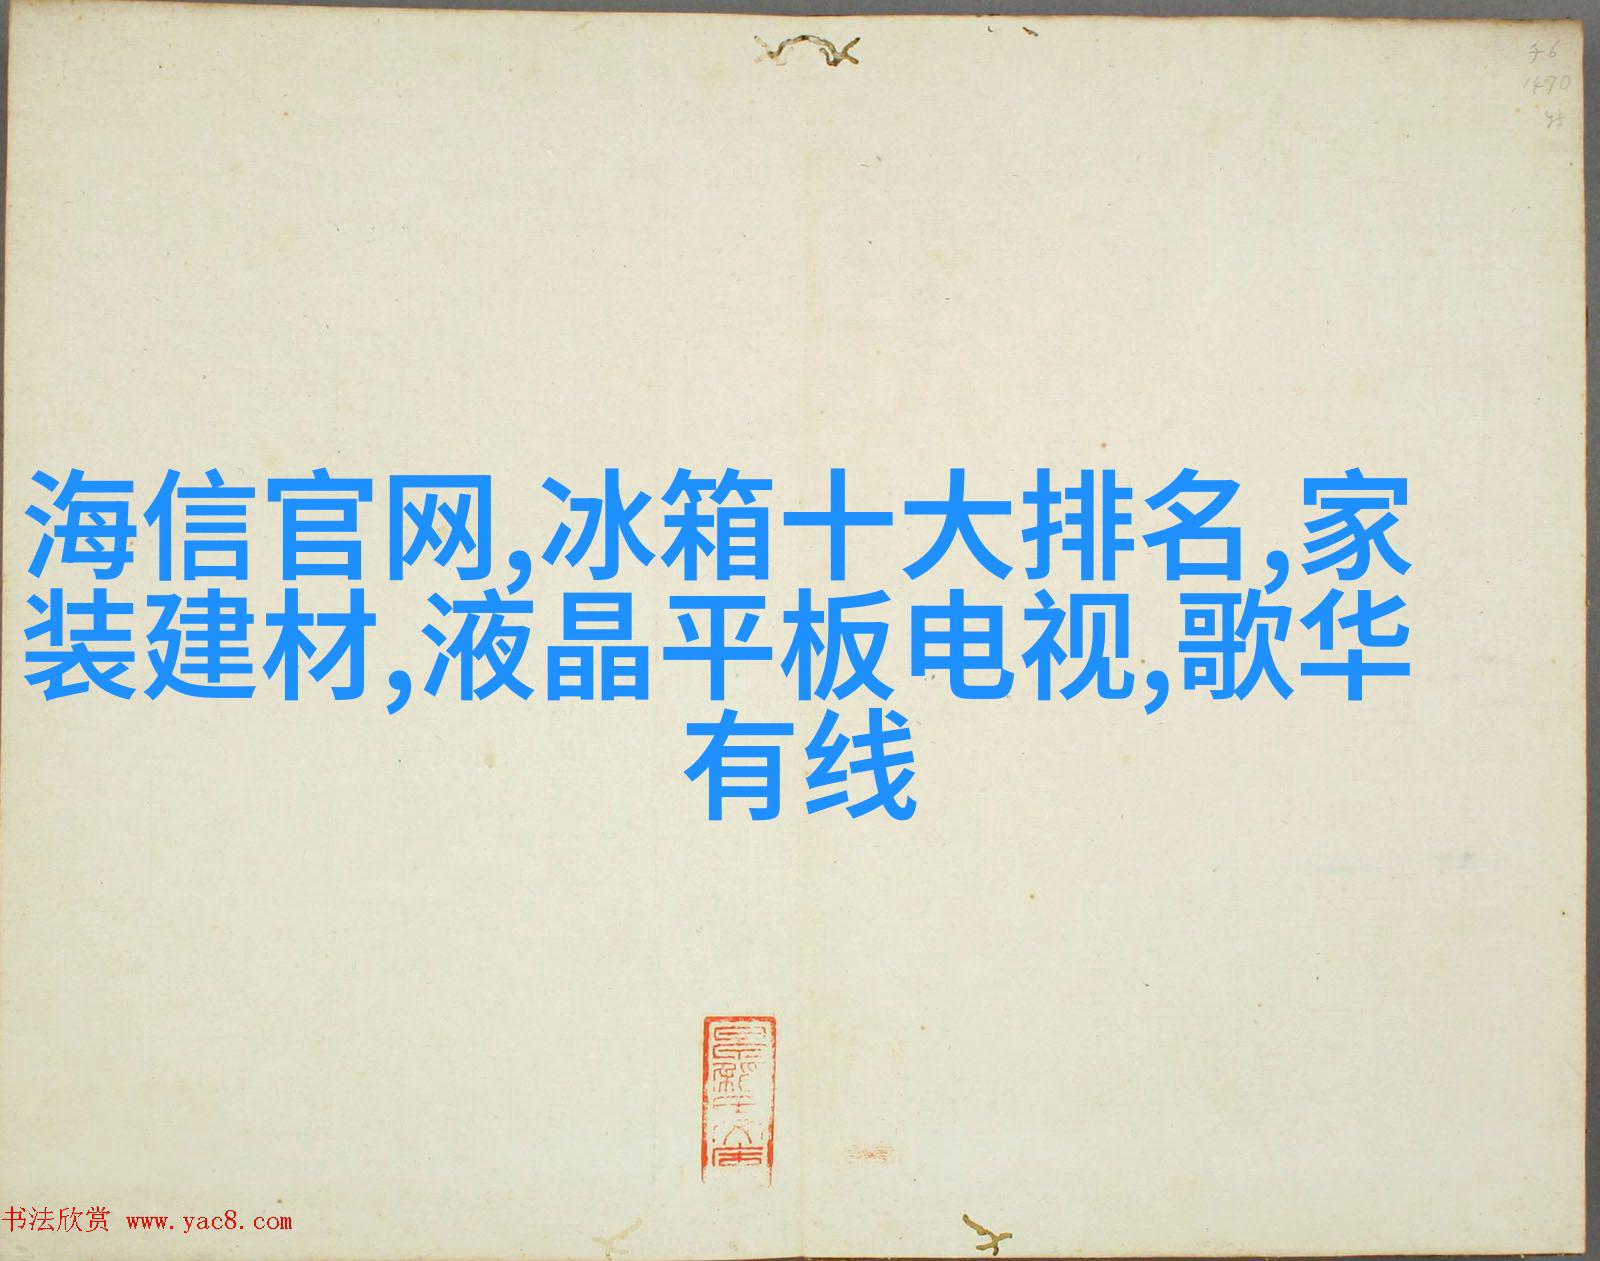 海信官网,冰箱十大排名,家
装建材,液晶平板电视,歌华
有线
1470
书法欣赏 www.yac8.com